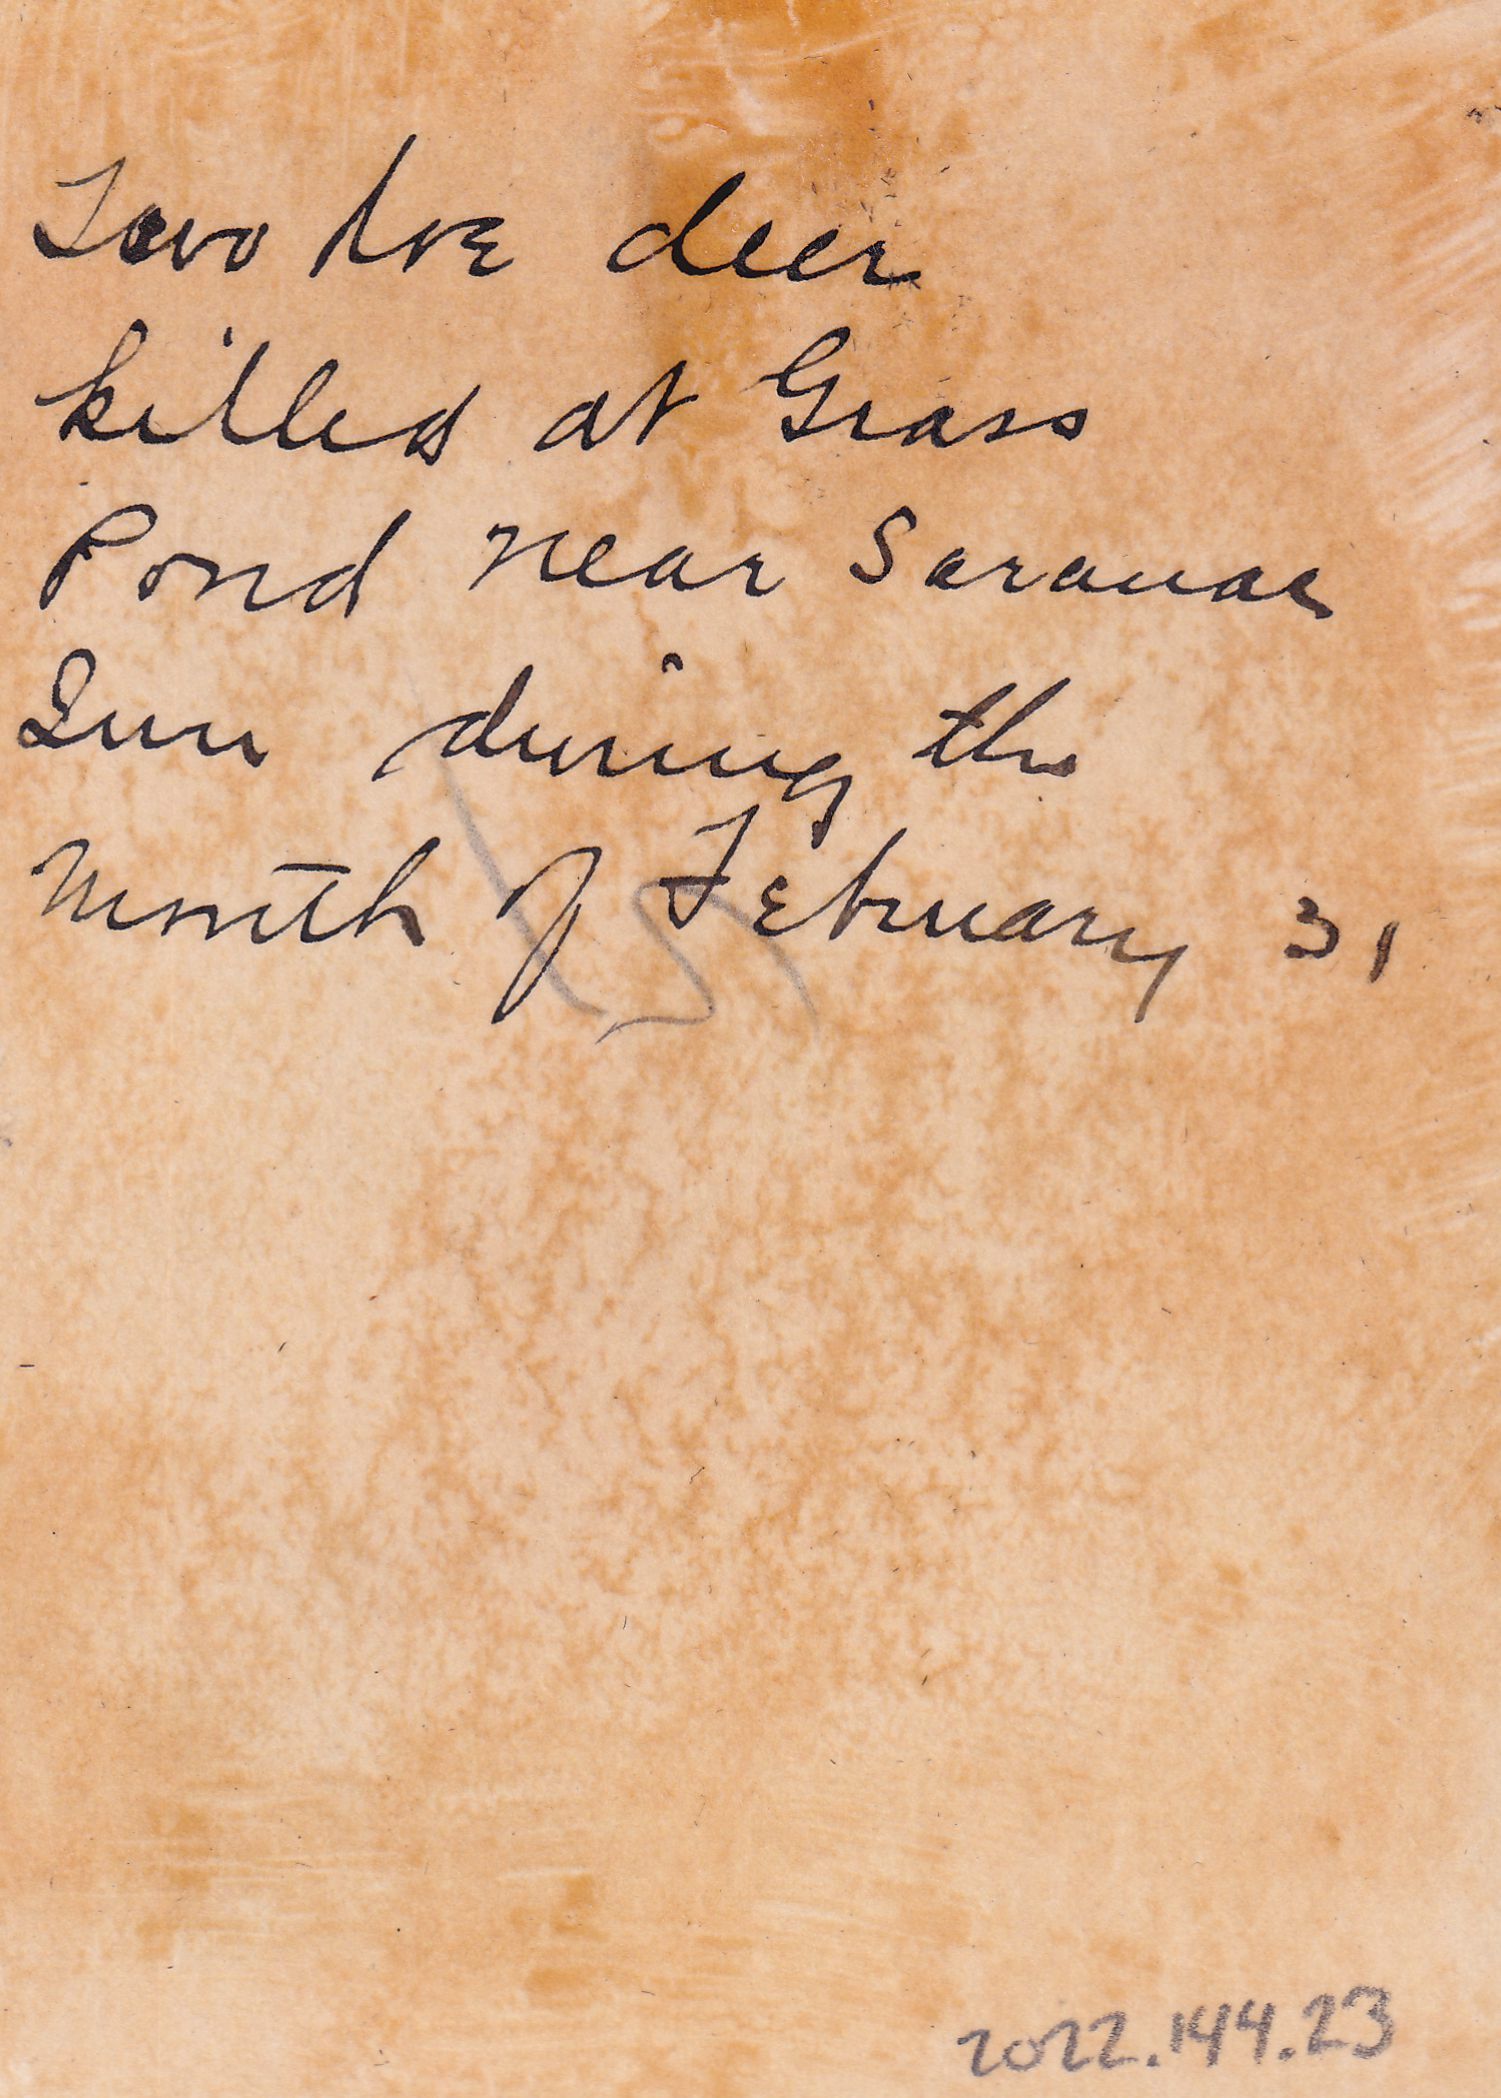 Two doe deer
killed at Grass
Pond near Saranac
Inn during the
Month of February 31
2022.144.23